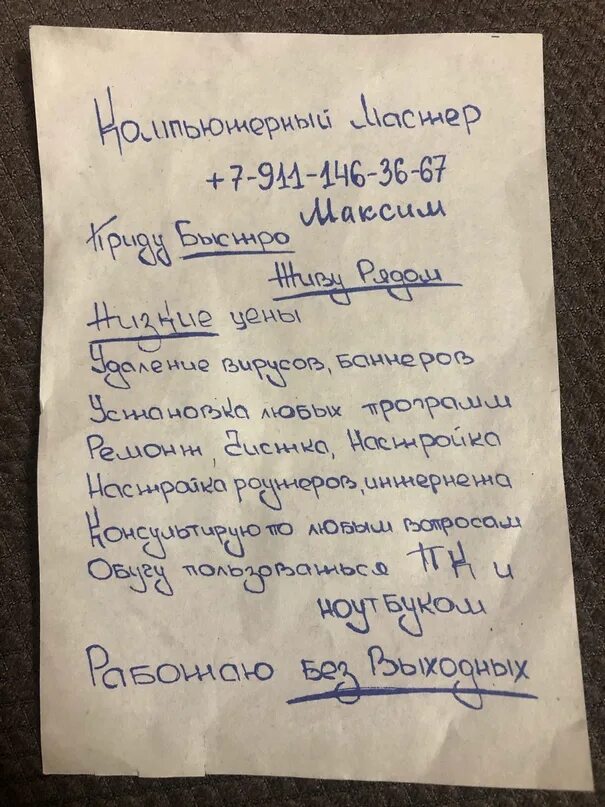 Компьютерный Мастер
+7-911-146-36-67
Максим
Приду Быстро
Живу Рядом
Низкие цены
Удаление вирусов, баннеров
Установка любых программ
Ремонт, Чистка, Настройка
Настройка роутеров, интернета
Консультирую по любым вопросам
Обучу пользоваться ПК и
ноутбуком
Работаю Без Выходных